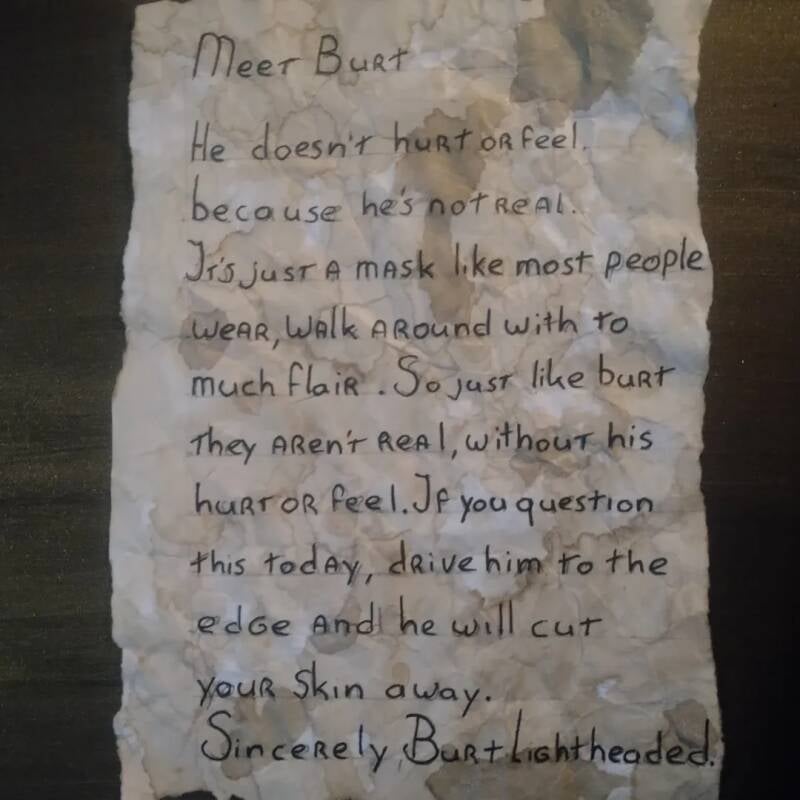 Meet Burt
He doesn't hurt or feel.
because he's not real.
It's just a mask like most people
wear, walk around with to
much flair. So just like burt
they aren't real, without his
hurt or feel. If you question
this today, drive him to the
edge and he will cut
your skin away.
Sincerely, Burt Lightheaded.